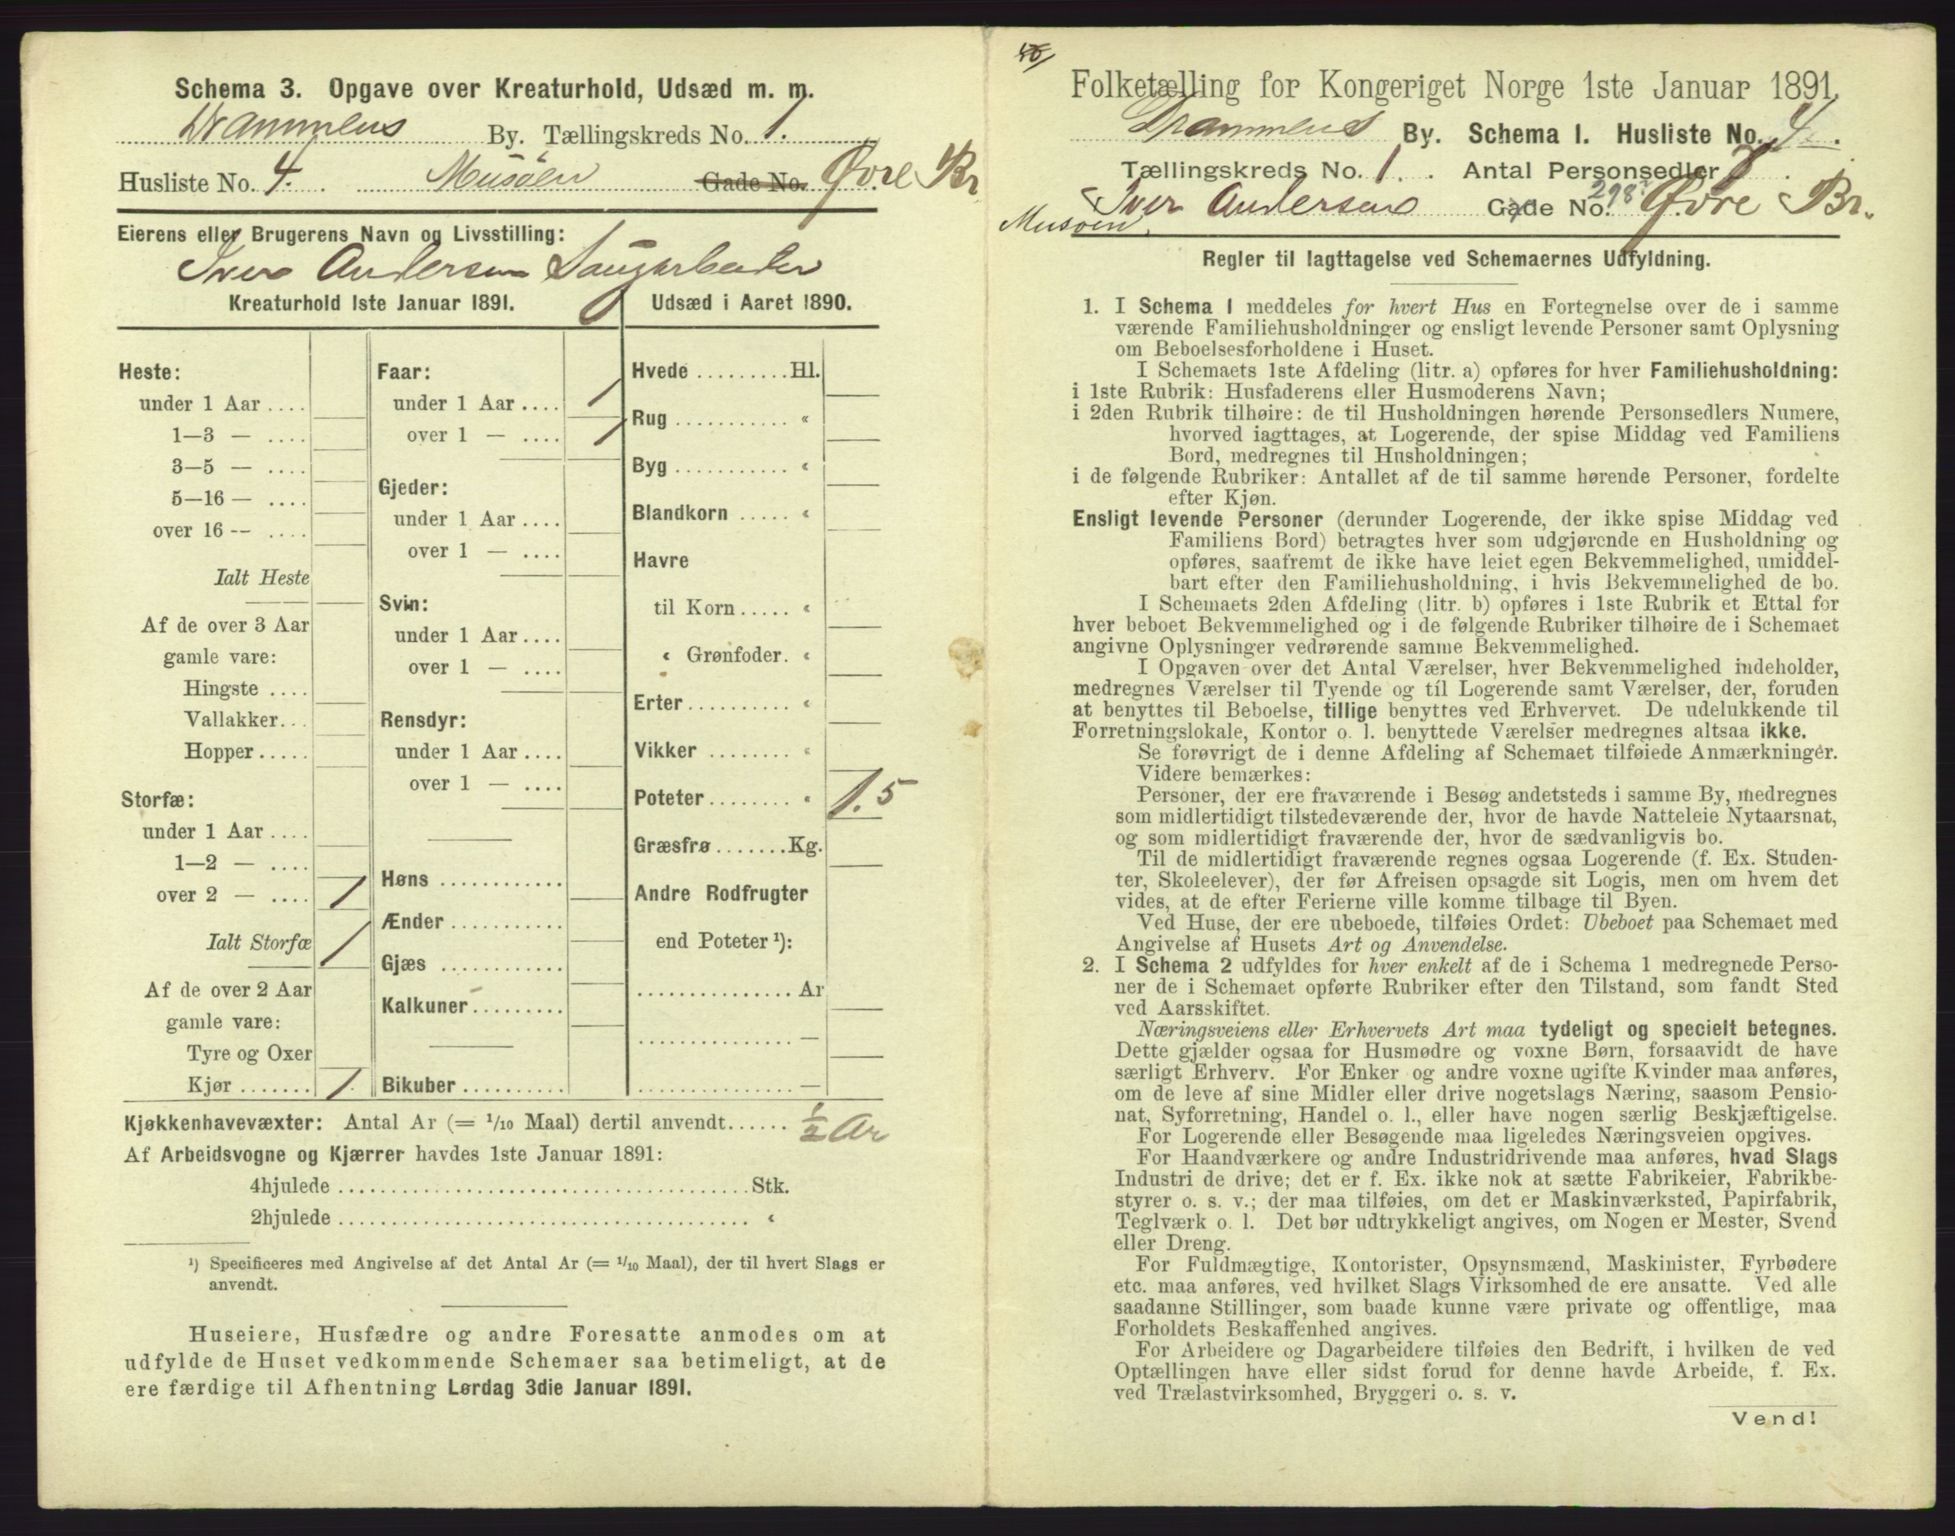 Schema 3. Opgave over Kreaturhold, Udsæd m. m.
Drammens By. Tællingskreds No. 1.
Husliste No. 4. Musøen Gade No. Øvre Br
Eierens eller Brugerens Navn og Livsstilling:
Iver Andersen Saugarbeider
Kreaturhold 1ste Januar 1891.
Heste:
under 1 Aar ....
1—3 — ....
3—5 — ....
5—16 — ....
over 16 -- ....
Ialt Heste
Af de over 3 Aar
gamle vare:
Hingste ....
Vallakker...
Hopper.....
Storfæ:
under 1 Aar ....
1—2 — ....
over 2 — .... 1
Ialt Storfæ 1
Af de over 2 Aar
gamle vare:
Tyre og Oxer
Kjør ....... 1.
Faar:
under 1 Aar .... 1
over 1 — .... 1
Gjeder:
under 1 Aar ....
over 1 — ....
Svin:
under 1 Aar....
over 1 — ....
Rensdyr:
under 1 Aar....
over 1 — ....
Høns ............
Ænder ...........
Gjæs ............
Kalkuner .........
Bikuber ..........
Udsæd i Aaret 1890.
Hvede .........Hl.
Rug ........... «
Byg ........... «
Blandkorn ..... «
Havre
til Korn ..... «
« Grønfoder. «
Erter.......... «
Vikker ........ «
Poteter........ « 1.5
Græsfrø.......Kg.
Andre Rodfrugter
end Poteter ¹):
............... Ar
............... —
............... —
Kjøkkenhavevæxter: Antal Ar (= 1/10 Maal) dertil anvendt...... ½ Ar
Af Arbeidsvogne og Kjærrer havdes 1ste Januar 1891:
4hjulede ........................................Stk.
2hjulede ........................................ «
¹) Specificeres med Angivelse af det Antal Ar (= 1/10 Maal), der til hvert Slags er
anvendt.
Huseiere, Husfædre og andre Foresatte anmodes om at
udfylde de Huset vedkommende Schemaer saa betimeligt, at de
ere færdige til Afhentning Lørdag 3die Januar 1891.
Folketælling for Kongeriget Norge 1ste Januar 1891.
Drammens By. Schema 1. Husliste No. 4.
Tællingskreds No. 1. Antal Personsedler 7
Iver Andersens Gade No. 298 Øvre Br.
Musøen
Regler til Iagttagelse ved Schemaernes Udfyldning.
1. I Schema 1 meddeles for hvert Hus en Fortegnelse over de i samme
værende Familiehusholdninger og ensligt levende Personer samt Oplysning
om Beboelsesforholdene i Huset.
I Schemaets 1ste Afdeling (litr. a) opføres for hver Familiehusholdning:
i 1ste Rubrik: Husfaderens eller Husmoderens Navn;
i 2den Rubrik tilhøire: de til Husholdningen hørende Personsedlers Numere,
hvorved iagttages, at Logerende, der spise Middag ved Familiens
Bord, medregnes til Husholdningen;
i de følgende Rubriker: Antallet af de til samme hørende Personer, fordelte
efter Kjøn.
Ensligt levende Personer (derunder Logerende, der ikke spise Middag ved
Familiens Bord) betragtes hver som udgjørende en Husholdning og
opføres, saafremt de ikke have leiet egen Bekvemmelighed, umiddel-
bart efter den Familiehusholdning, i hvis Bekvemmelighed de bo.
I Schemaets 2den Afdeling (litr. b) opføres i 1ste Rubrik et Ettal for
hver beboet Bekvemmelighed og i de følgende Rubriker tilhøire de i Schemaet
angivne Oplysninger vedrørende samme Bekvemmelighed.
I Opgaven over det Antal Værelser, hver Bekvemmelighed indeholder,
medregnes Værelser til Tyende og til Logerende samt Værelser, der, foruden
at benyttes til Beboelse, tillige benyttes ved Erhvervet. De udelukkende til
Forretningslokale, Kontor o. l. benyttede Værelser medregnes altsaa ikke.
Se forøvrigt de i denne Afdeling af Schemaet tilføiede Anmærkninger.
Videre bemærkes:
Personer, der ere fraværende i Besøg andetsteds i samme By, medregnes
som midlertidigt tilstedeværende der, hvor de havde Natteleie Nytaarsnat,
og som midlertidigt fraværende der, hvor de sædvanligvis bo.
Til de midlertidigt fraværende regnes ogsaa Logerende (f. Ex. Studen-
ter, Skoleelever), der før Afreisen opsagde sit Logis, men om hvem det
vides, at de efter Ferierne ville komme tilbage til Byen.
Ved Huse, der ere ubeboede, tilføies Ordet: Ubeboet paa Schemaet med
Angivelse af Husets Art og Anvendelse.
2. I Schema 2 udfyldes for hver enkelt af de i Schema 1 medregnede Perso-
ner de i Schemaet opførte Rubriker efter den Tilstand, som fandt Sted
ved Aarsskiftet.
Næringsveiens eller Erhvervets Art maa tydeligt og specielt betegnes.
Dette gjælder ogsaa for Husmødre og voxne Børn, forsaavidt de have
særligt Erhverv. For Enker og andre voxne ugifte Kvinder maa anføres,
om de leve af sine Midler eller drive nogetslags Næring, saasom Pensio-
nat, Syforretning, Handel o. l., eller have nogen særlig Beskjæftigelse.
For Logerende eller Besøgende maa ligeledes Næringsveien opgives.
For Haandværkere og andre Industridrivende maa anføres, hvad Slags
Industri de drive; det er f. Ex. ikke nok at sætte Fabrikeier, Fabrikbe-
styrer o. s. v.; der maa tilføies, om det er Maskinværksted, Papirfabrik,
Teglværk o. l. Det bør udtrykkeligt angives, om Nogen er Mester, Svend
eller Dreng.
For Fuldmægtige, Kontorister, Opsynsmænd, Maskinister, Fyrbødere
etc. maa anføres, ved hvilket Slags Virksomhed de ere ansatte. Ved alle
saadanne Stillinger, som baade kunne være private og offentlige, maa
Forholdets Beskaffenhed angives.
For Arbeidere og Dagarbeidere tilføies den Bedrift, i hvilken de ved
Optællingen have eller sidst forud for denne havde Arbeide, f. Ex.
ved Trælastvirksomhed, Bryggeri o. s. v.
Vend!